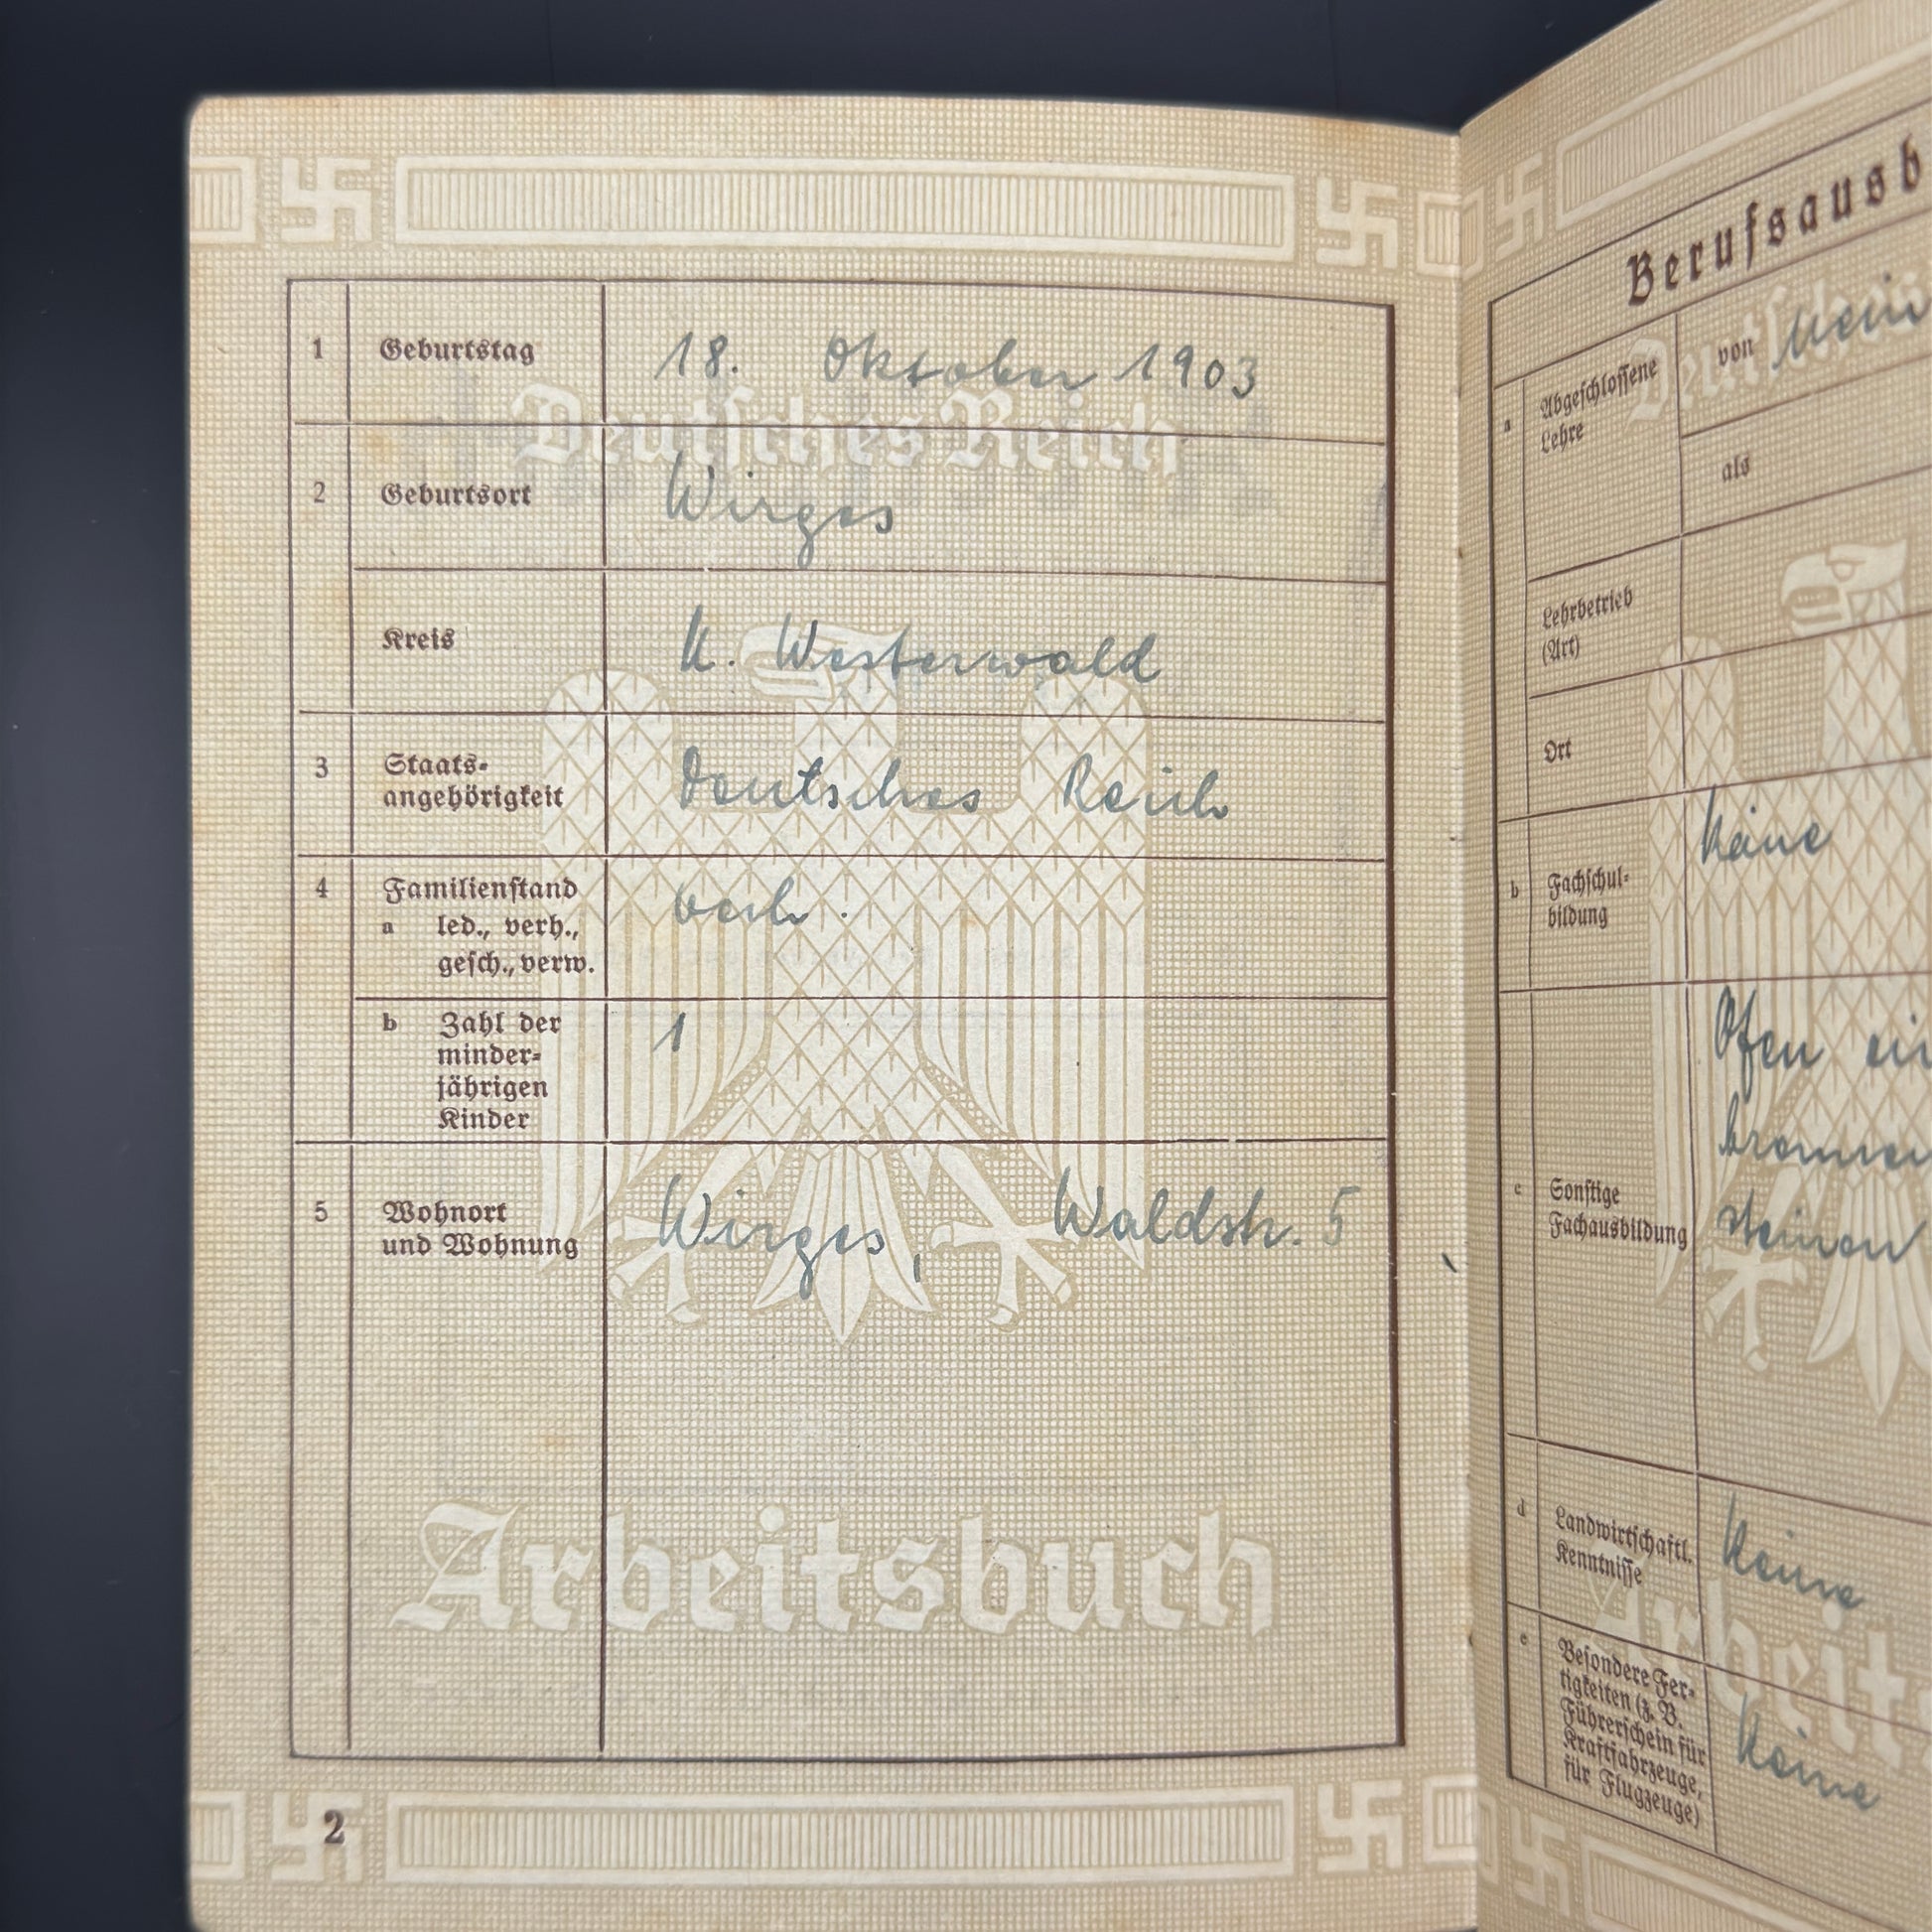 1 Geburtstag 18. Oktober 1903
Deutsches Reich
2 Geburtsort Wirges
Kreis U. Westerwald
3 Staats-
angehörigkeit Deutsches Reich
4 Familienstand verh.
a led., verh.,
gesch., verw.
b Zahl der 1
minder-
jährigen
Kinder
5 Wohnort
und Wohnung Wirges, Waldstr. 5
Arbeitsbuch
2
Berufsausb
a Abgeschlossene
Lehre
von
als
Lehrbetrieb
(Art)
Ort
b Fachschul-
bildung
Keine
c Sonstige
Fachausbildung
Ofen
steinen
d Landwirtschaftl.
Kenntnisse
Keine
e Besondere Fer-
tigkeiten (z. B.
Führerschein für
Kraftfahrzeuge,
für Flugzeuge)
Keine